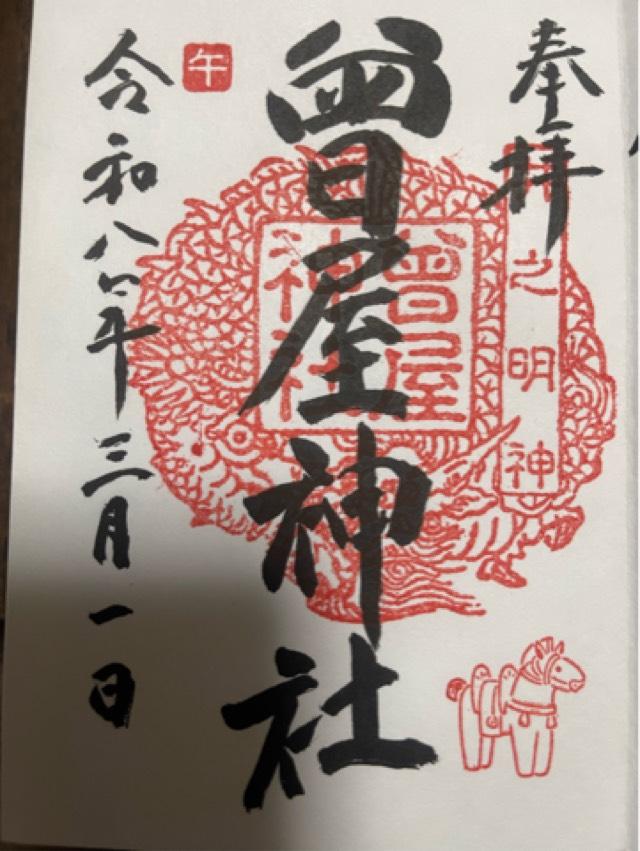 奉拝
之明神
曾屋神社
曾屋
神社
午
令和八年三月一日